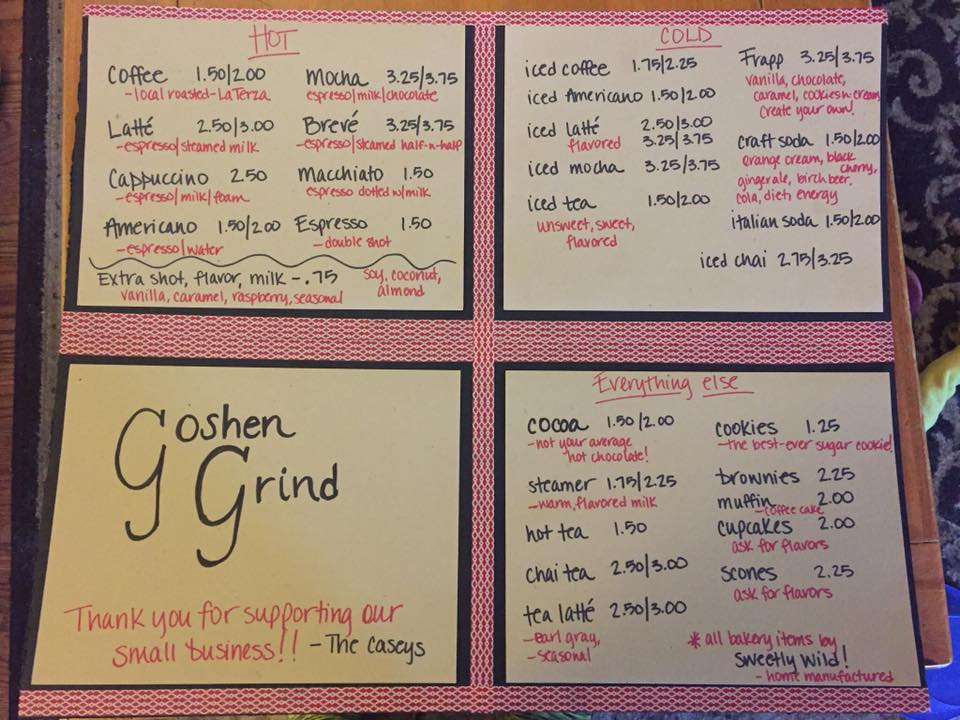 HOT
Coffee 1.50/2.00
-local roasted-La Terza
Latté 2.50/3.00
-espresso/steamed milk
Cappuccino 2.50
-espresso/milk/foam
Americano 1.50/2.00
-espresso/water
Mocha 3.25/3.75
espresso/milk/chocolate
Brevé 3.25/3.75
-espresso/steamed half-n-half
Macchiato 1.50
espresso dotted w/milk
Espresso 1.50
-double shot
Extra shot, flavor, milk -.75
vanilla, caramel, raspberry, seasonal
soy, coconut,
almond
COLD
iced coffee 1.75/2.25
iced Americano 1.50/2.00
iced latté 2.50/3.00
flavored 3.25/3.75
iced mocha 3.25/3.75
iced tea 1.50/2.00
unsweet, sweet,
flavored
Frapp 3.25/3.75
vanilla, chocolate,
caramel, cookies-n-cream,
Create your own!
craft soda 1.50/2.00
orange cream, black cherry,
gingerale, birch beer,
cola, diet, energy
italian soda 1.50/2.00
iced chai 2.75/3.25
Goshen
Grind
Thank you for supporting our
small business!! -The Caseys
Everything else
cocoa 1.50/2.00
-not your average
hot chocolate!
steamer 1.75/2.25
-warm, flavored milk
hot tea 1.50
chai tea 2.50/3.00
tea latté 2.50/3.00
-Earl gray,
-seasonal
cookies 1.25
-the best-ever sugar cookie!
brownies 2.25
muffin 2.00
-coffee cake
cupcakes 2.00
ask for flavors
scones 2.25
ask for flavors
* all bakery items by
Sweetly Wild!
- home manufactured